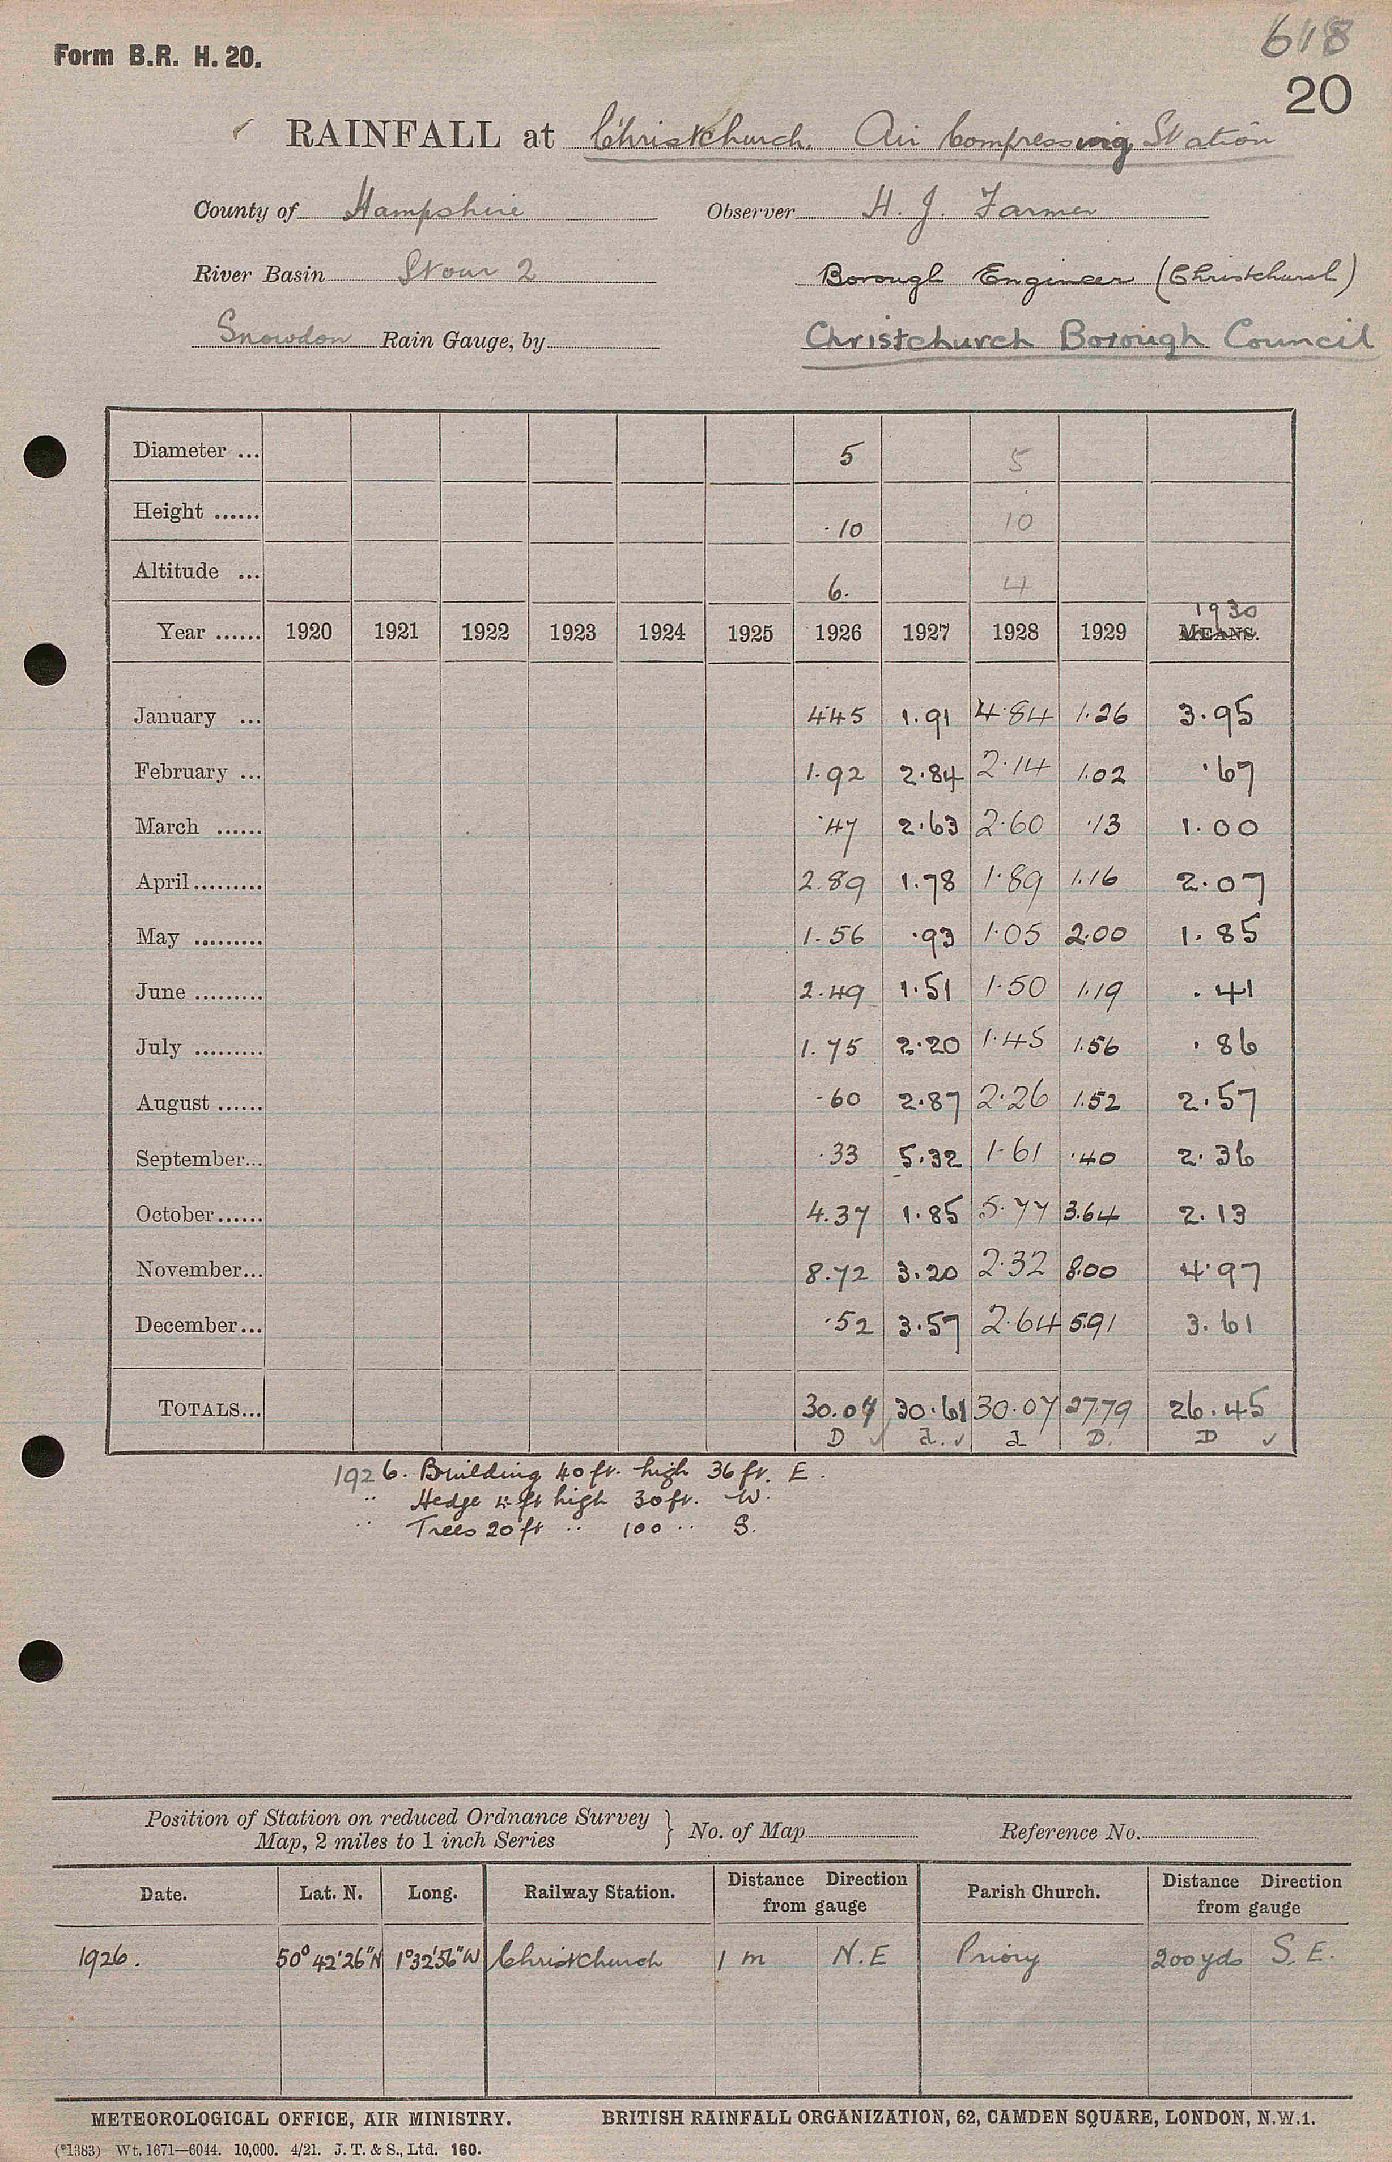 618
Form B.R. H. 20.
20
RAINFALL at Christchurch. Air Compressing Station
County of Hampshire Observer H. J. Farmer
River Basin Stour 2 Borough Engineer (Christchurch)
Snowdon Rain Gauge, by Christchurch Borough Council
Diameter ... 5 5
Height ...... .10 10
Altitude ... 6. 4
1930
Year ...... 1920 1921 1922 1923 1924 1925 1926 1927 1928 1929 MEANS.
January ... 4.45 1.91 4.84 1.26 3.95
February ... 1.92 2.84 2.14 1.02 .67
March ...... .47 2.63 2.60 .13 1.00
April ......... 2.89 1.78 1.89 1.16 2.07
May ......... 1.56 .93 1.05 2.00 1.85
June ......... 2.49 1.51 1.50 1.19 .41
July ......... 1.75 2.20 1.45 1.56 .86
August ...... .60 2.87 2.26 1.52 2.57
September... .33 5.32 1.61 .40 2.36
October...... 4.37 1.85 5.77 3.64 2.13
November... 8.72 3.20 2.32 8.00 4.97
December... .52 3.57 2.64 5.91 3.61
TOTALS... 30.07 30.61 30.07 27.79 26.45
D d. d D. D
1926. Building 40 ft. high 36 ft. E.
" Hedge ft high 30 ft. W.
" Trees 20 ft " 100 " S.
Position of Station on reduced Ordnance Survey
Map, 2 miles to 1 inch Series } No. of Map Reference No.
Date. Lat. N. Long. Railway Station. Distance Direction from gauge Parish Church. Distance Direction from gauge
1926. 50° 42' 26" N 1° 32' 56" W Christchurch 1 m N.E Priory 200 yds S.E.
METEOROLOGICAL OFFICE, AIR MINISTRY. BRITISH RAINFALL ORGANIZATION, 62, CAMDEN SQUARE, LONDON, N.W.1.
(*1383) Wt. 1671—6044. 10,000. 4/21. J. T. & S., Ltd. 160.